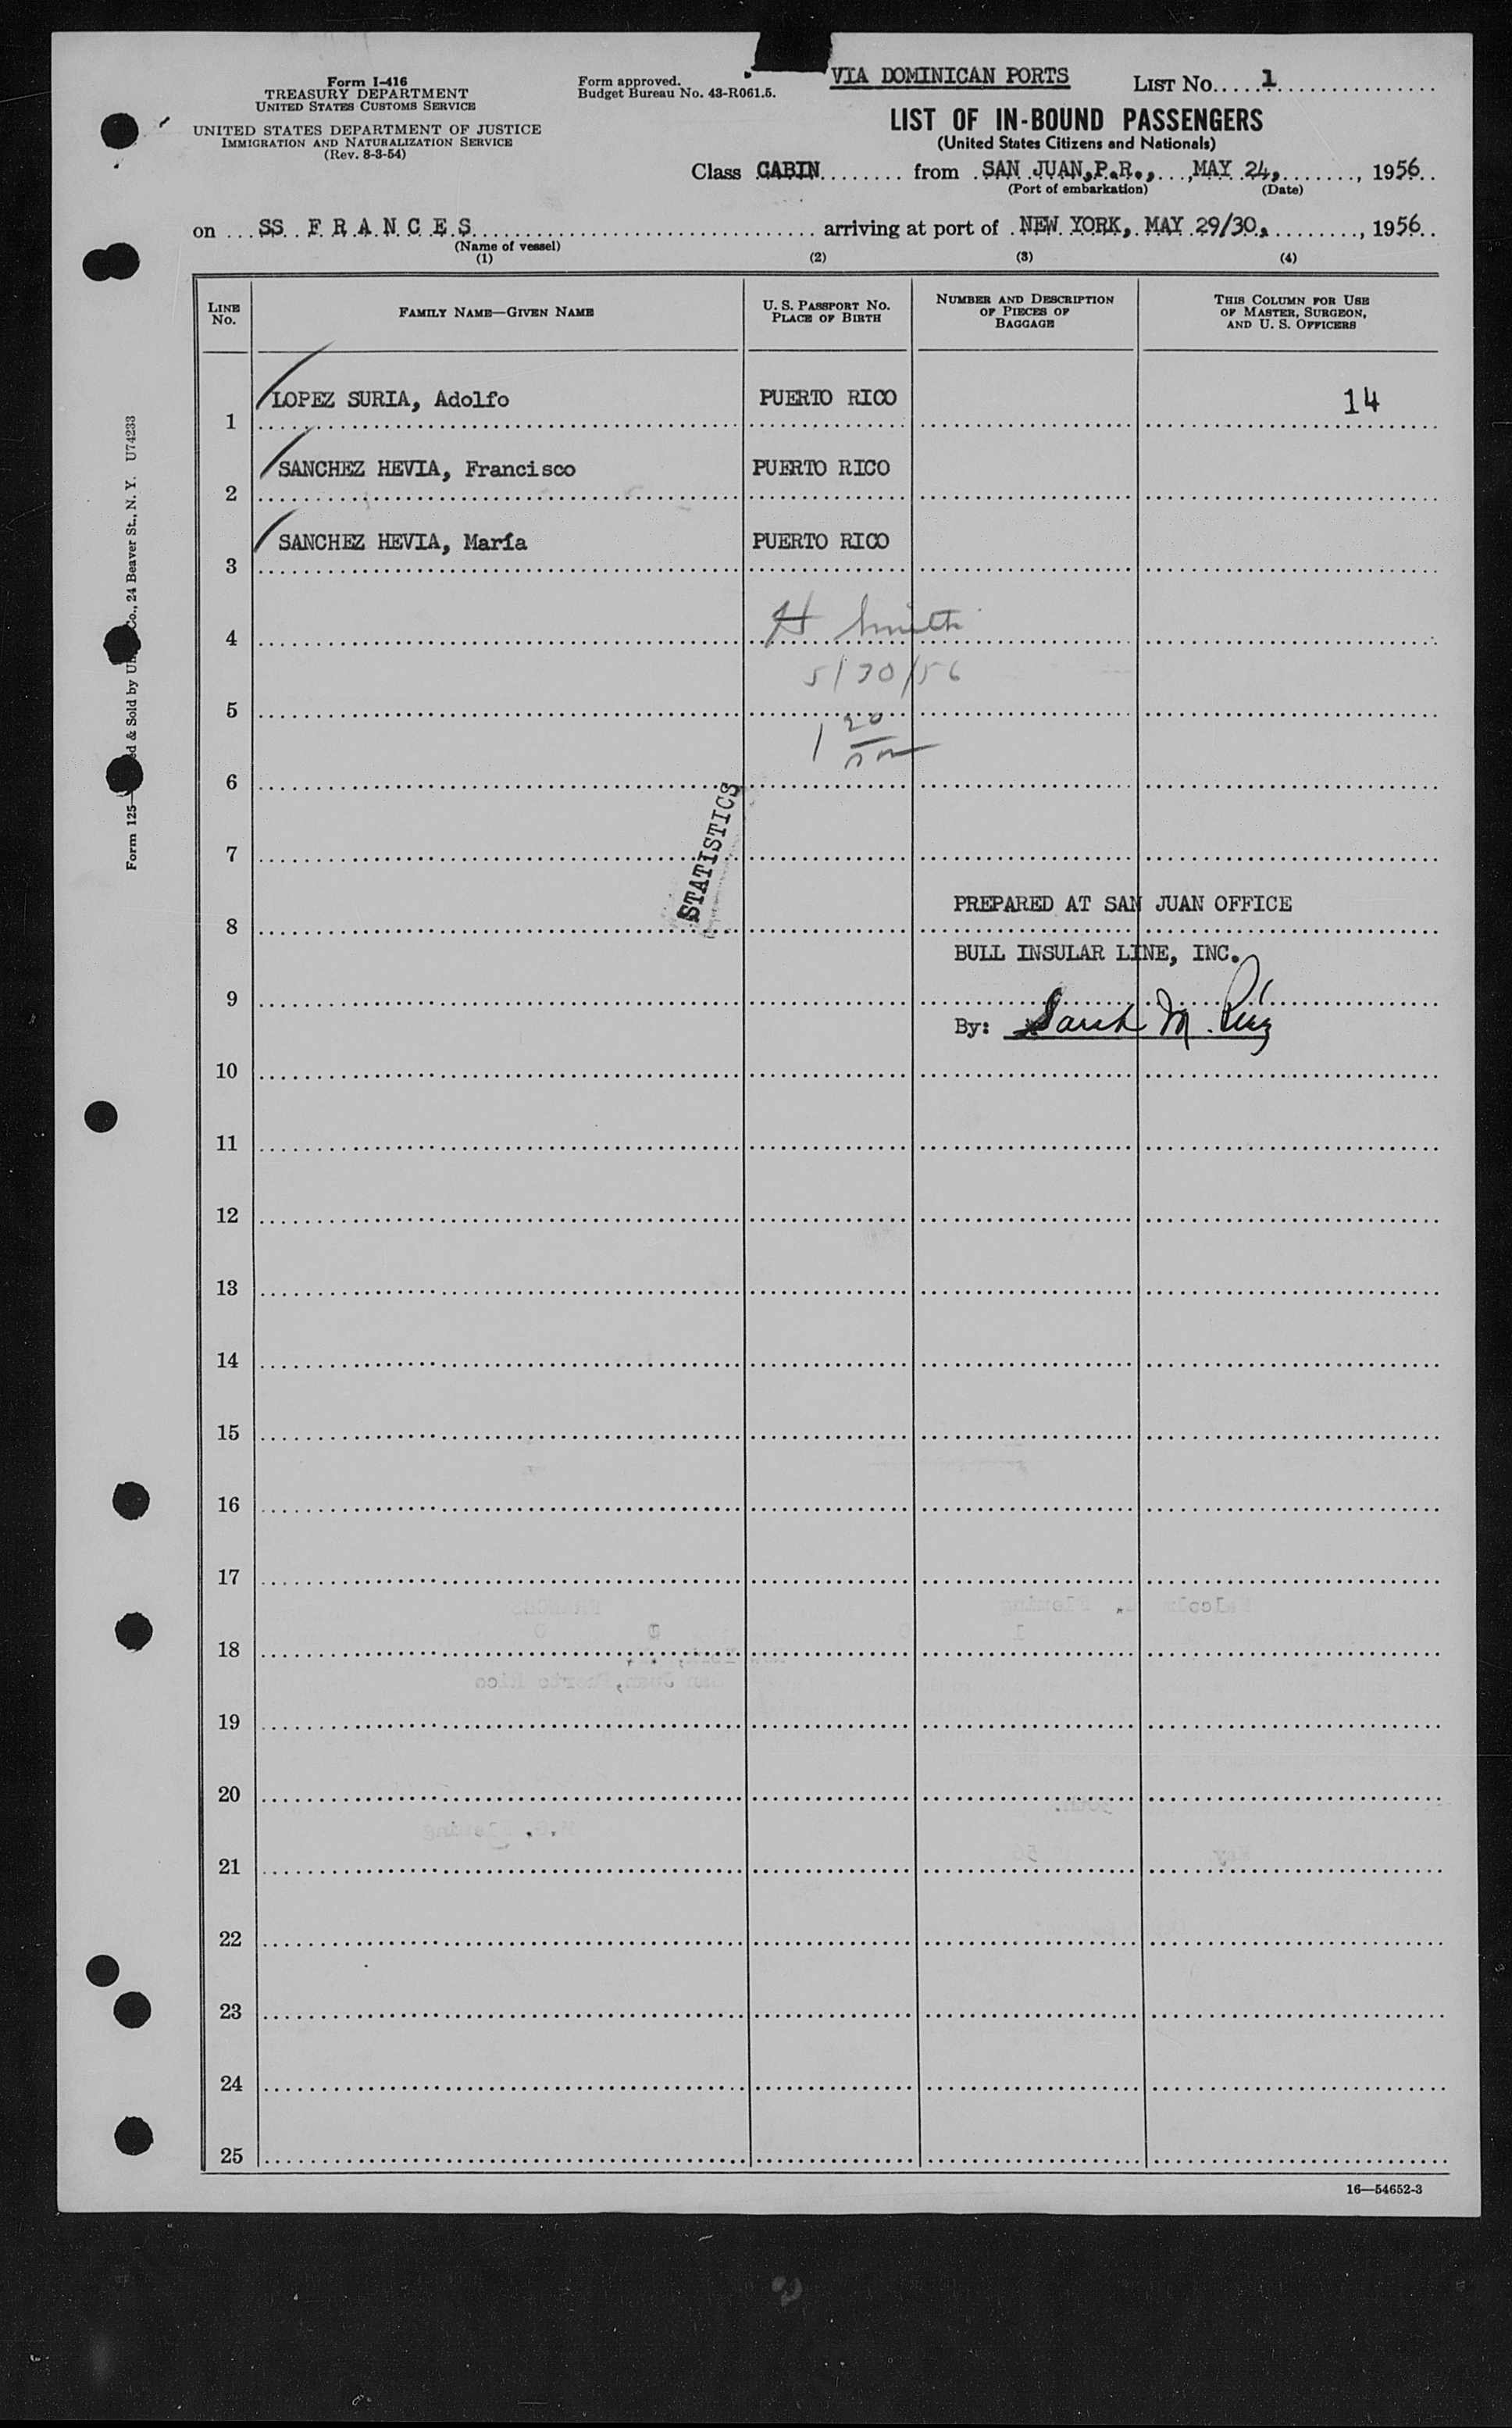 Form I-416
TREASURY DEPARTMENT
UNITED STATES CUSTOMS SERVICE
UNITED STATES DEPARTMENT OF JUSTICE
IMMIGRATION AND NATURALIZATION SERVICE
(Rev. 8-3-54)
Form approved.
Budget Bureau No. 43-R061.5.
VIA DOMINICAN PORTS
LIST No. 1
LIST OF IN-BOUND PASSENGERS
(United States Citizens and Nationals)
Class CABIN from SAN JUAN, P.R., MAY 24, 1956
(Port of embarkation) (Date)
on SS F R A N C E S arriving at port of NEW YORK, MAY 29/30, 1956
(Name of vessel)
(1) (2) (3) (4)
LINE No. FAMILY NAME—GIVEN NAME U. S. PASSPORT NO. PLACE OF BIRTH NUMBER AND DESCRIPTION OF PIECES OF BAGGAGE THIS COLUMN FOR USE OF MASTER, SURGEON, AND U. S. OFFICERS
1 LOPEZ SURIA, Adolfo PUERTO RICO 14
2 SANCHEZ HEVIA, Francisco PUERTO RICO
3 SANCHEZ HEVIA, María PUERTO RICO
4 H Smith
5/30/56
5
6
STATISTICS
7
PREPARED AT SAN JUAN OFFICE
8
BULL INSULAR LINE, INC.
9
By: Sarah M.
10
11
12
13
14
15
16
17
18
19
20
21
22
23
24
25
16—54652-3
Form 125— ed & Sold by Co., 24 Beaver St., N. Y. U74233